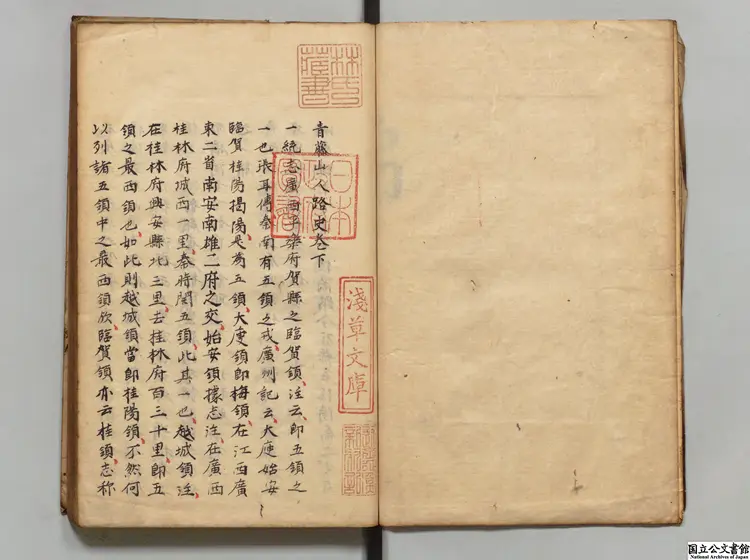 青藤山人路史卷下
一統志廣西平樂府賀縣之臨賀領注云即五領之
一也張耳傳秦南有五領之戍廣州記云大庾始安
臨賀桂陽揭陽是為五領大庾領即梅領在江西廣
東二省南安南雄二府之交始安領據志注在廣西
桂林府城西一里秦時開五領此其一也越城領注
在桂林府興安縣北三里去桂林府百三十里即五
領之最西領也如此則越城領當即桂陽領不然何
以列諸五領中之最西領欤臨賀領亦云桂領志称
林氏藏書
日本政府圖書
淺草文庫
国立公文書館
National Archives of Japan